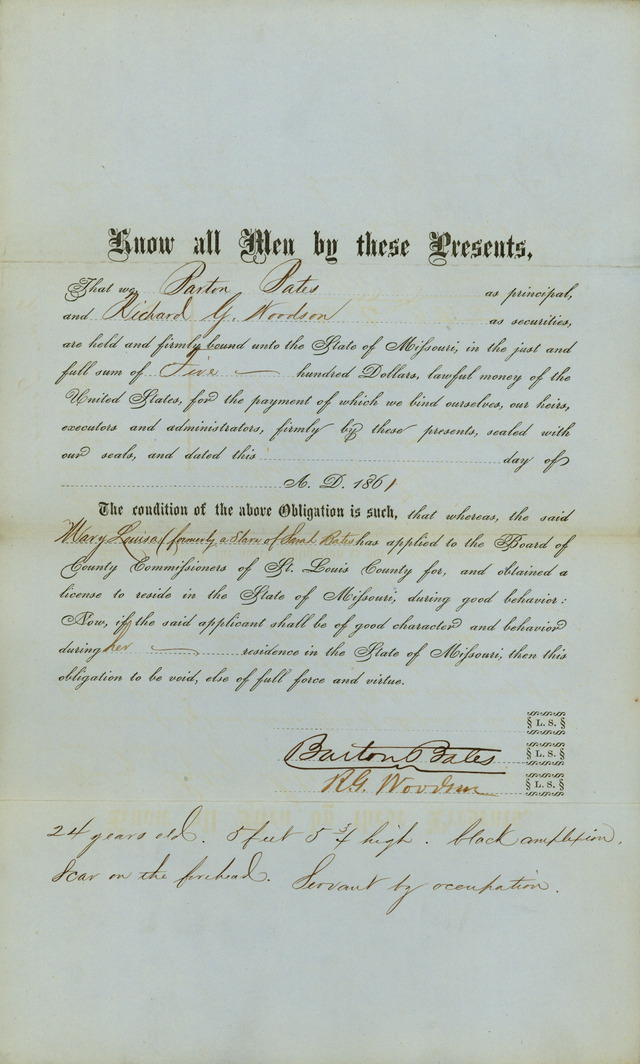 Know all Men by these Presents,
That we Barton Bates as principal,
and Richard G. Woodson as securities,
are held and firmly bound unto the State of Missouri, in the just and
full sum of Five hundred Dollars, lawful money of the
United States, for the payment of which we bind ourselves, our heirs,
executors and administrators, firmly by these presents, sealed with
our seals, and dated this day of
A. D. 1861
The condition of the above Obligation is such, that whereas, the said
Mary Louisa (formerly a Slave of Sarah Bates has applied to the Board of
County Commissioners of St. Louis County for, and obtained a
license to reside in the State of Missouri, during good behavior:
Now, if the said applicant shall be of good character and behavior
during her residence in the State of Missouri, then this
obligation to be void, else of full force and virtue.
L. S.
Barton Bates L. S.
R. G. Woodson L. S.
24 years old. 5 feet 5 3/4 high. black complexion.
Scar on the forehead. Servant by occupation.